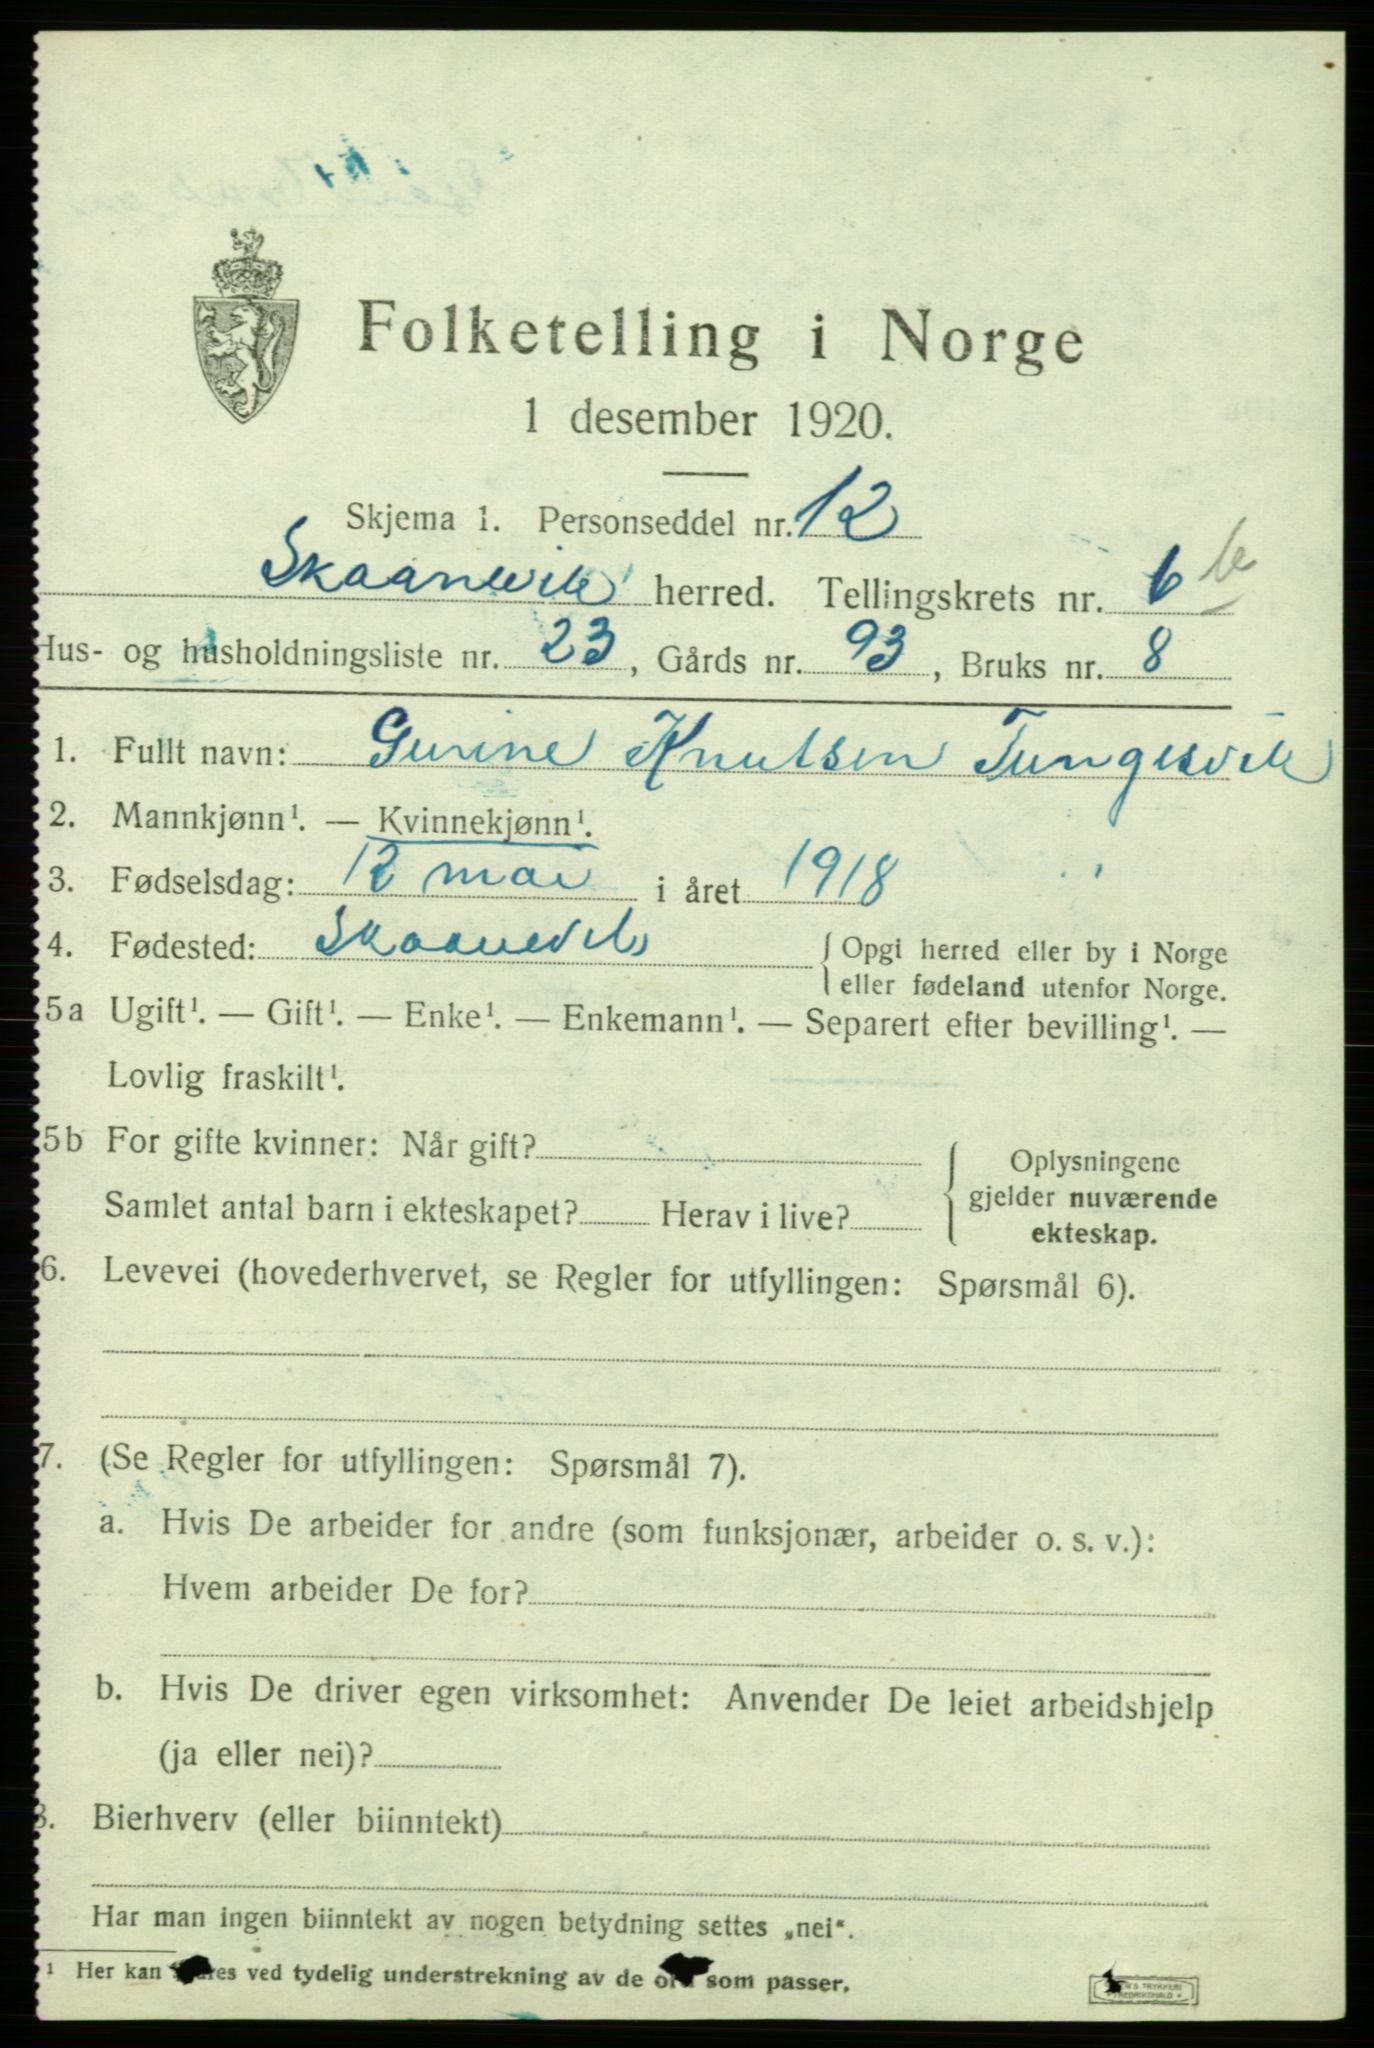 Folketelling i Norge
1 desember 1920.
Skjema 1. Personseddel nr. 12
Skaanevik herred. Tellingskrets nr. 6 6
Hus- og husholdningsliste nr. 23, Gårds nr. 93, Bruks nr. 8
1. Fullt navn: Gurine Knutsen Tungesvik
2. Mannkjønn¹. — Kvinnekjønn¹.
3. Fødselsdag: 12 mai i året 1918
4. Fødested: Skaanevik {Opgi herred eller by i Norge
eller fødeland utenfor Norge.
5a Ugift¹. — Gift¹. — Enke¹. — Enkemann¹. — Separert efter bevilling¹. —
Lovlig fraskilt¹.
5b For gifte kvinner: Når gift?
Samlet antal barn i ekteskapet? Herav i live?
{Oplysningene
gjelder nuværende
ekteskap.
6. Levevei (hovederhvervet, se Regler for utfyllingen: Spørsmål 6).
7. (Se Regler for utfyllingen: Spørsmål 7).
a. Hvis De arbeider for andre (som funksjonær, arbeider o. s. v.):
Hvem arbeider De for?
b. Hvis De driver egen virksomhet: Anvender De leiet arbeidshjelp
(ja eller nei)?
8. Bierhverv (eller biinntekt)
Har man ingen biinntekt av nogen betydning settes „nei“.
¹ Her kan ved tydelig understrekning av de som passer.
TRYKKERI
FREDRIKSHALD